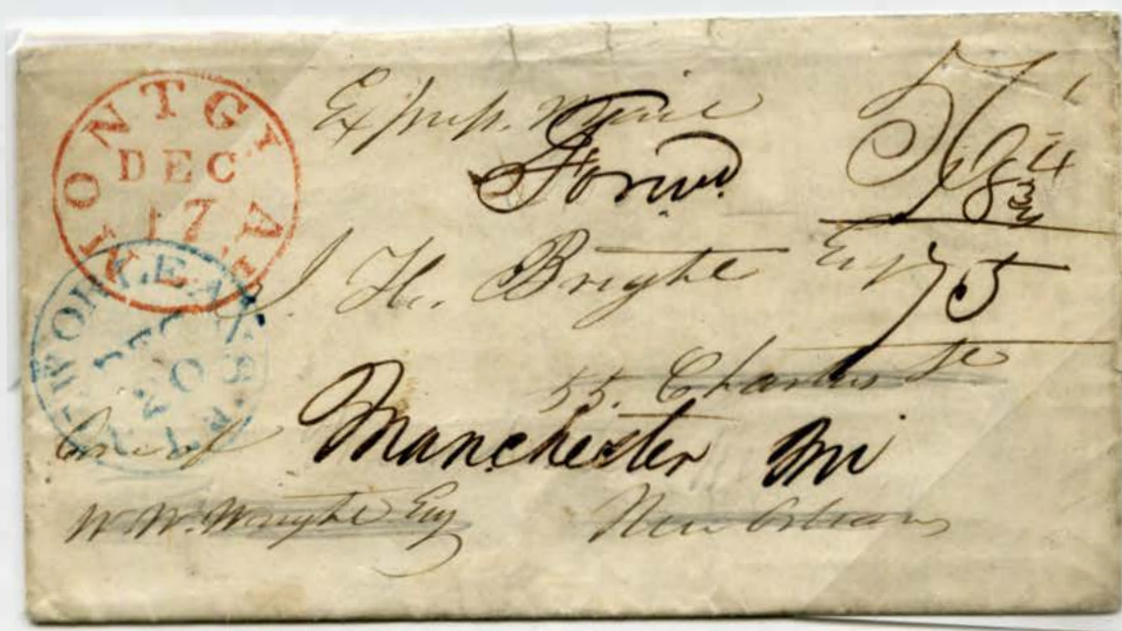 MONTGY AL.
DEC
17
NEW ORLEANS LA
DEC
20
Express Mail
Forwd.
56 1/4
18 3/4
75
J. H. Bright Esq
55. Chartres St
Care of
Manchester Mi
W. W. Wright Esq
New Orleans